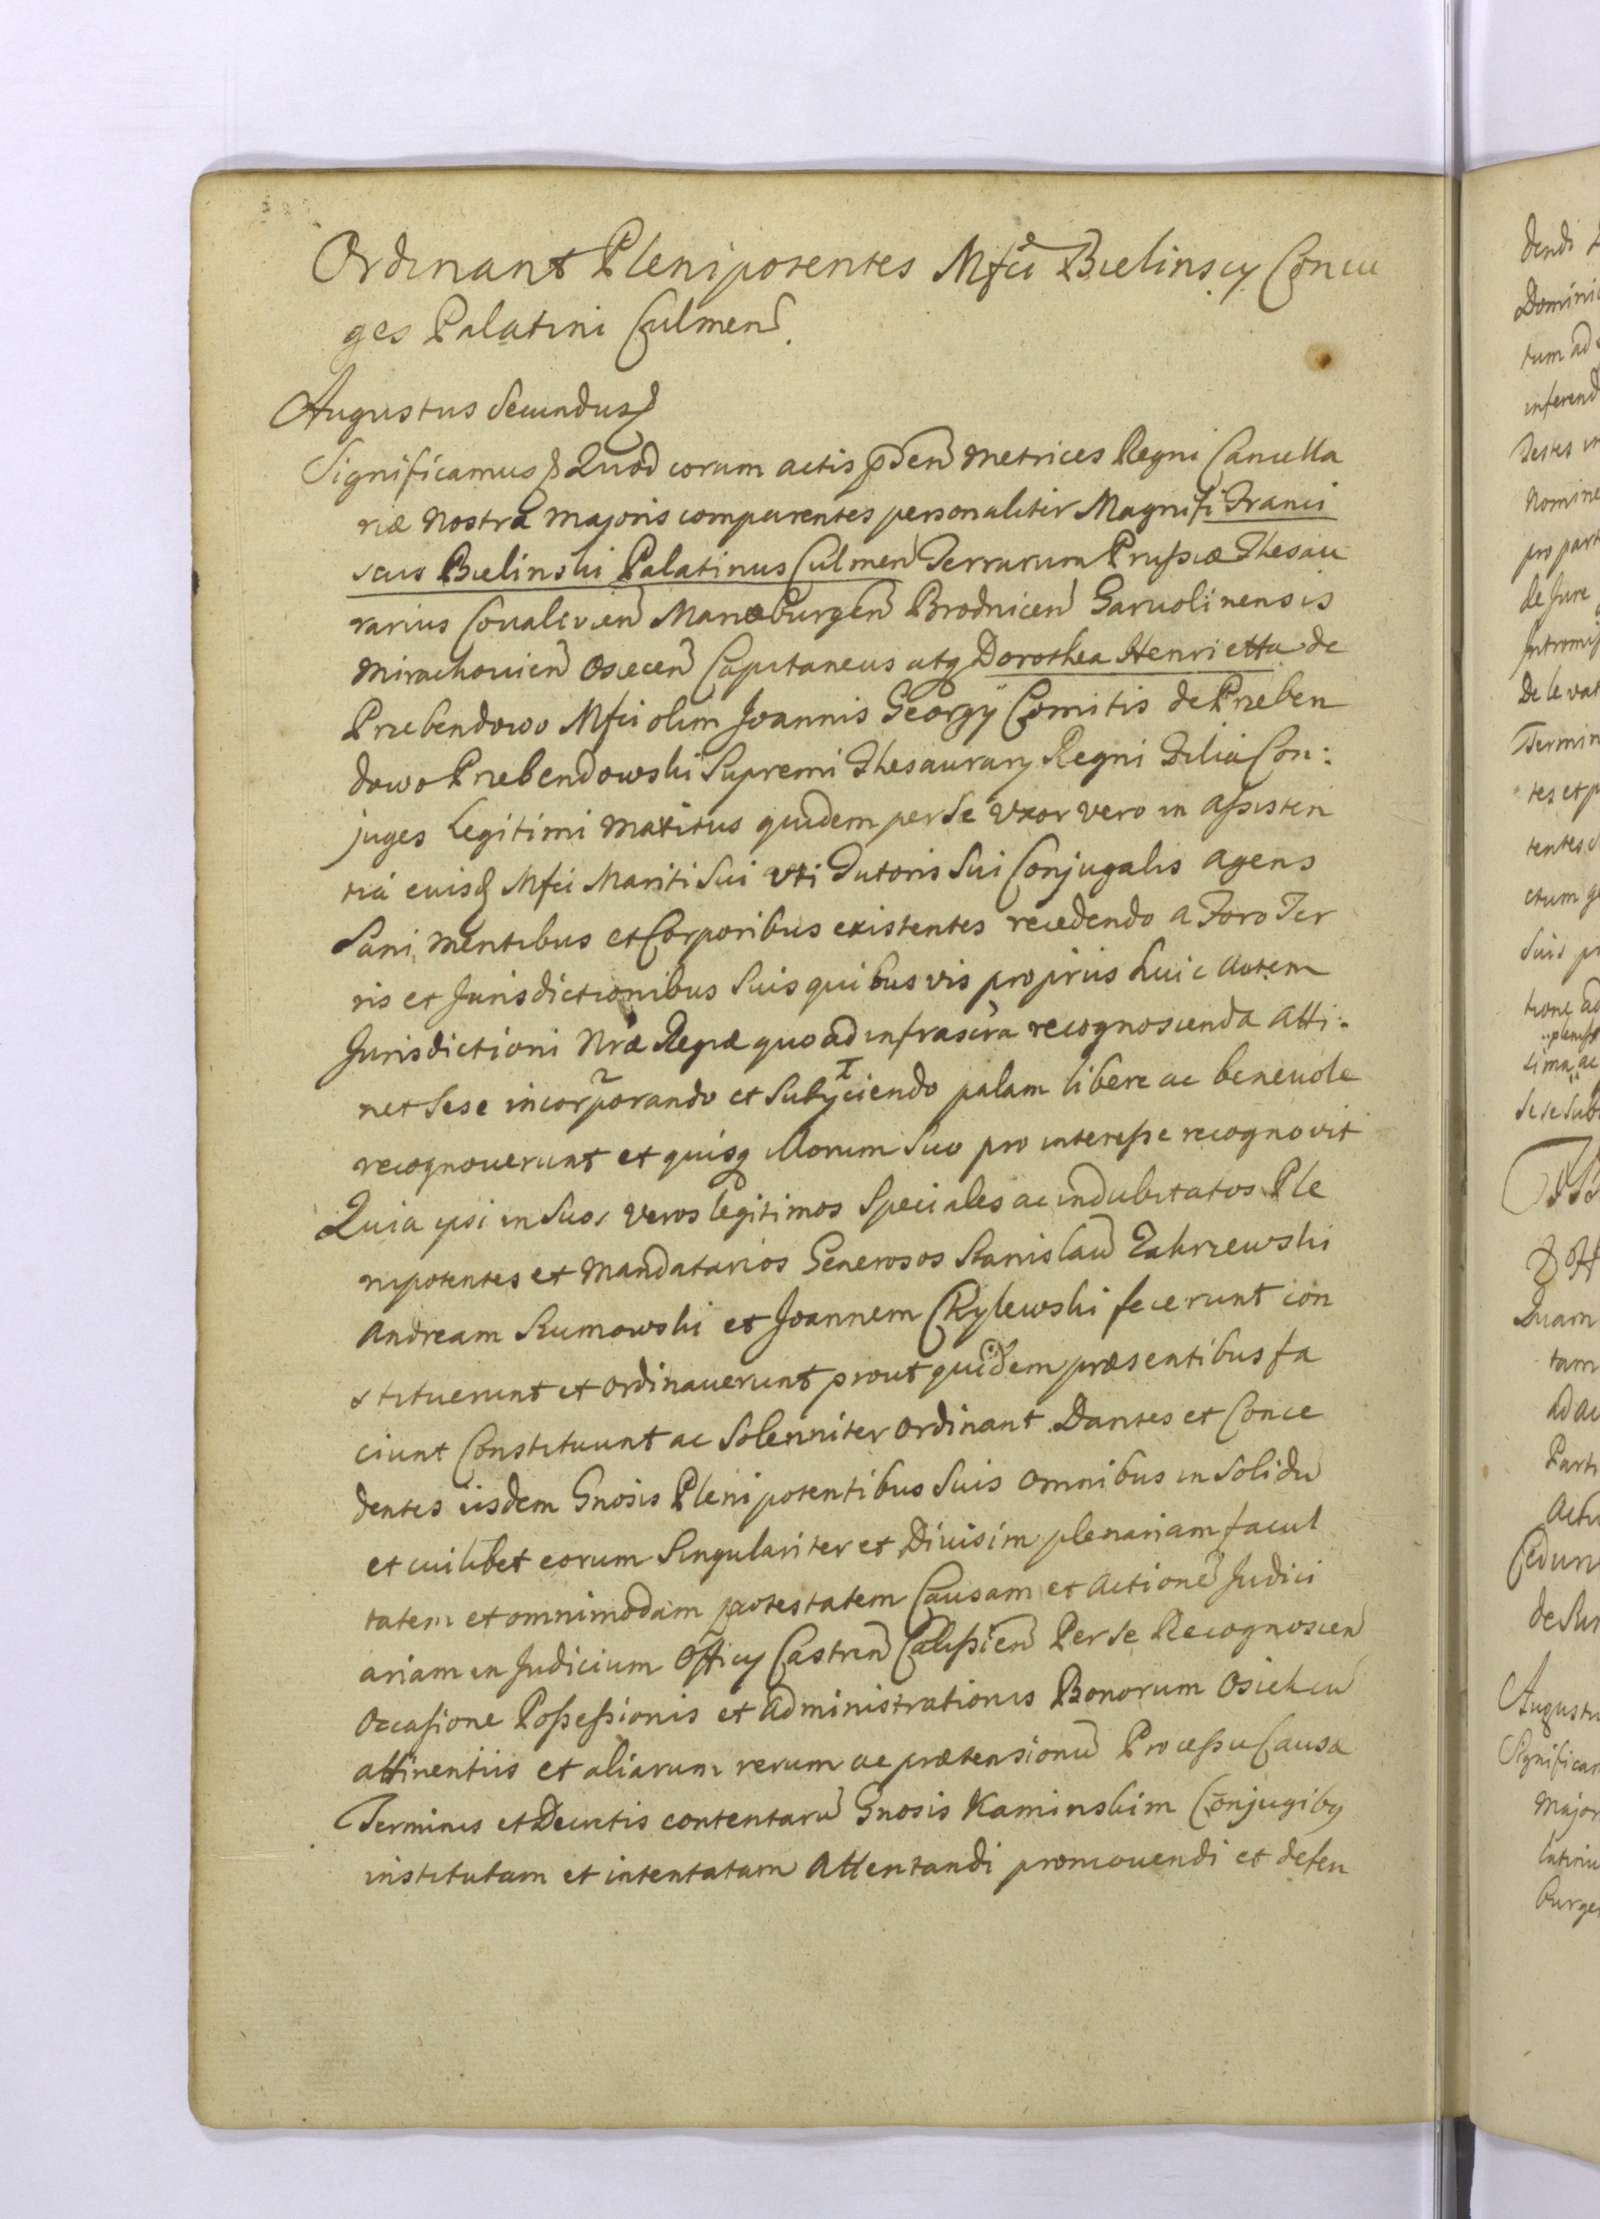 Ordinant Plenipotentes Mfci Bielinscy Coniu
ges Palatini Culmen
Augustus Secundus
Significamus Quod coram actis pden Metrices Regni Cancella
riæ Nostra Majoris comparentes personaliter Magnifi Franci
scus Bielinski Palatinus Culmen Terrarum Prussiæ Thesau
rarius Covalevien Marieburgen Brodnicen Garvolinensis
Mirachovien Osiecen Capitaneus atq Dorothea Henrietta de
Przebendowo Mfci olim Joannis Georgÿ Comitis de Przeben
dowo Przebendowski Supremi Thesaurary Regni Filia Con:
juges Legitimi Maritus quidem per se Vxor vero in assisten
tiá eiusd Mfci Mariti Sui Uti Tutoris Sui Conjugalis agens
Sani Mentibus et Corporibus existentes recedendo a Foro Ter
ris et Jurisdictionibus Suis quibusvis proprius huic autem
Jurisdictioni Nræ Regiæ quo ad infrascra recognoscenda atti.
net Sese incorporando et Subyciendo palam libere ac benevole
recognoverunt et quisq illorum Suo pro interesse recognovit
Quia ipsi in Suos Veros legitimos Speciales ac indubitatos Ple
nipotentes et Mandatarios Generosos Stanislau Zakrzewski
Andream Rumowski et Joannem Chylewski fecerunt con
stituerunt et ordinaverunt prout quidem præsentibus fa
ciunt Constituunt ac Solenniter ordinant Dantes et Conce
dentes iisdem Gnosis Plenipotentibus Suis omnibus in Solidu
et cuilibet eorum Singulariter et Divisim plenariam facul
tatem et omnimodam potestatem Causam et Actione Judici
ariam in Judicium Officy Castren Calissien Per Se Recognoscen
Occasione Possessionis et Administrationis Bonorum Osiek cu
attinentiis et aliarum rerum ac prætensionu Processu Causæ
Terminis et Decretis contentaru Gnosis Kaminskim Conjugibq
institutam et intentatam Attentandi promovendi et defen